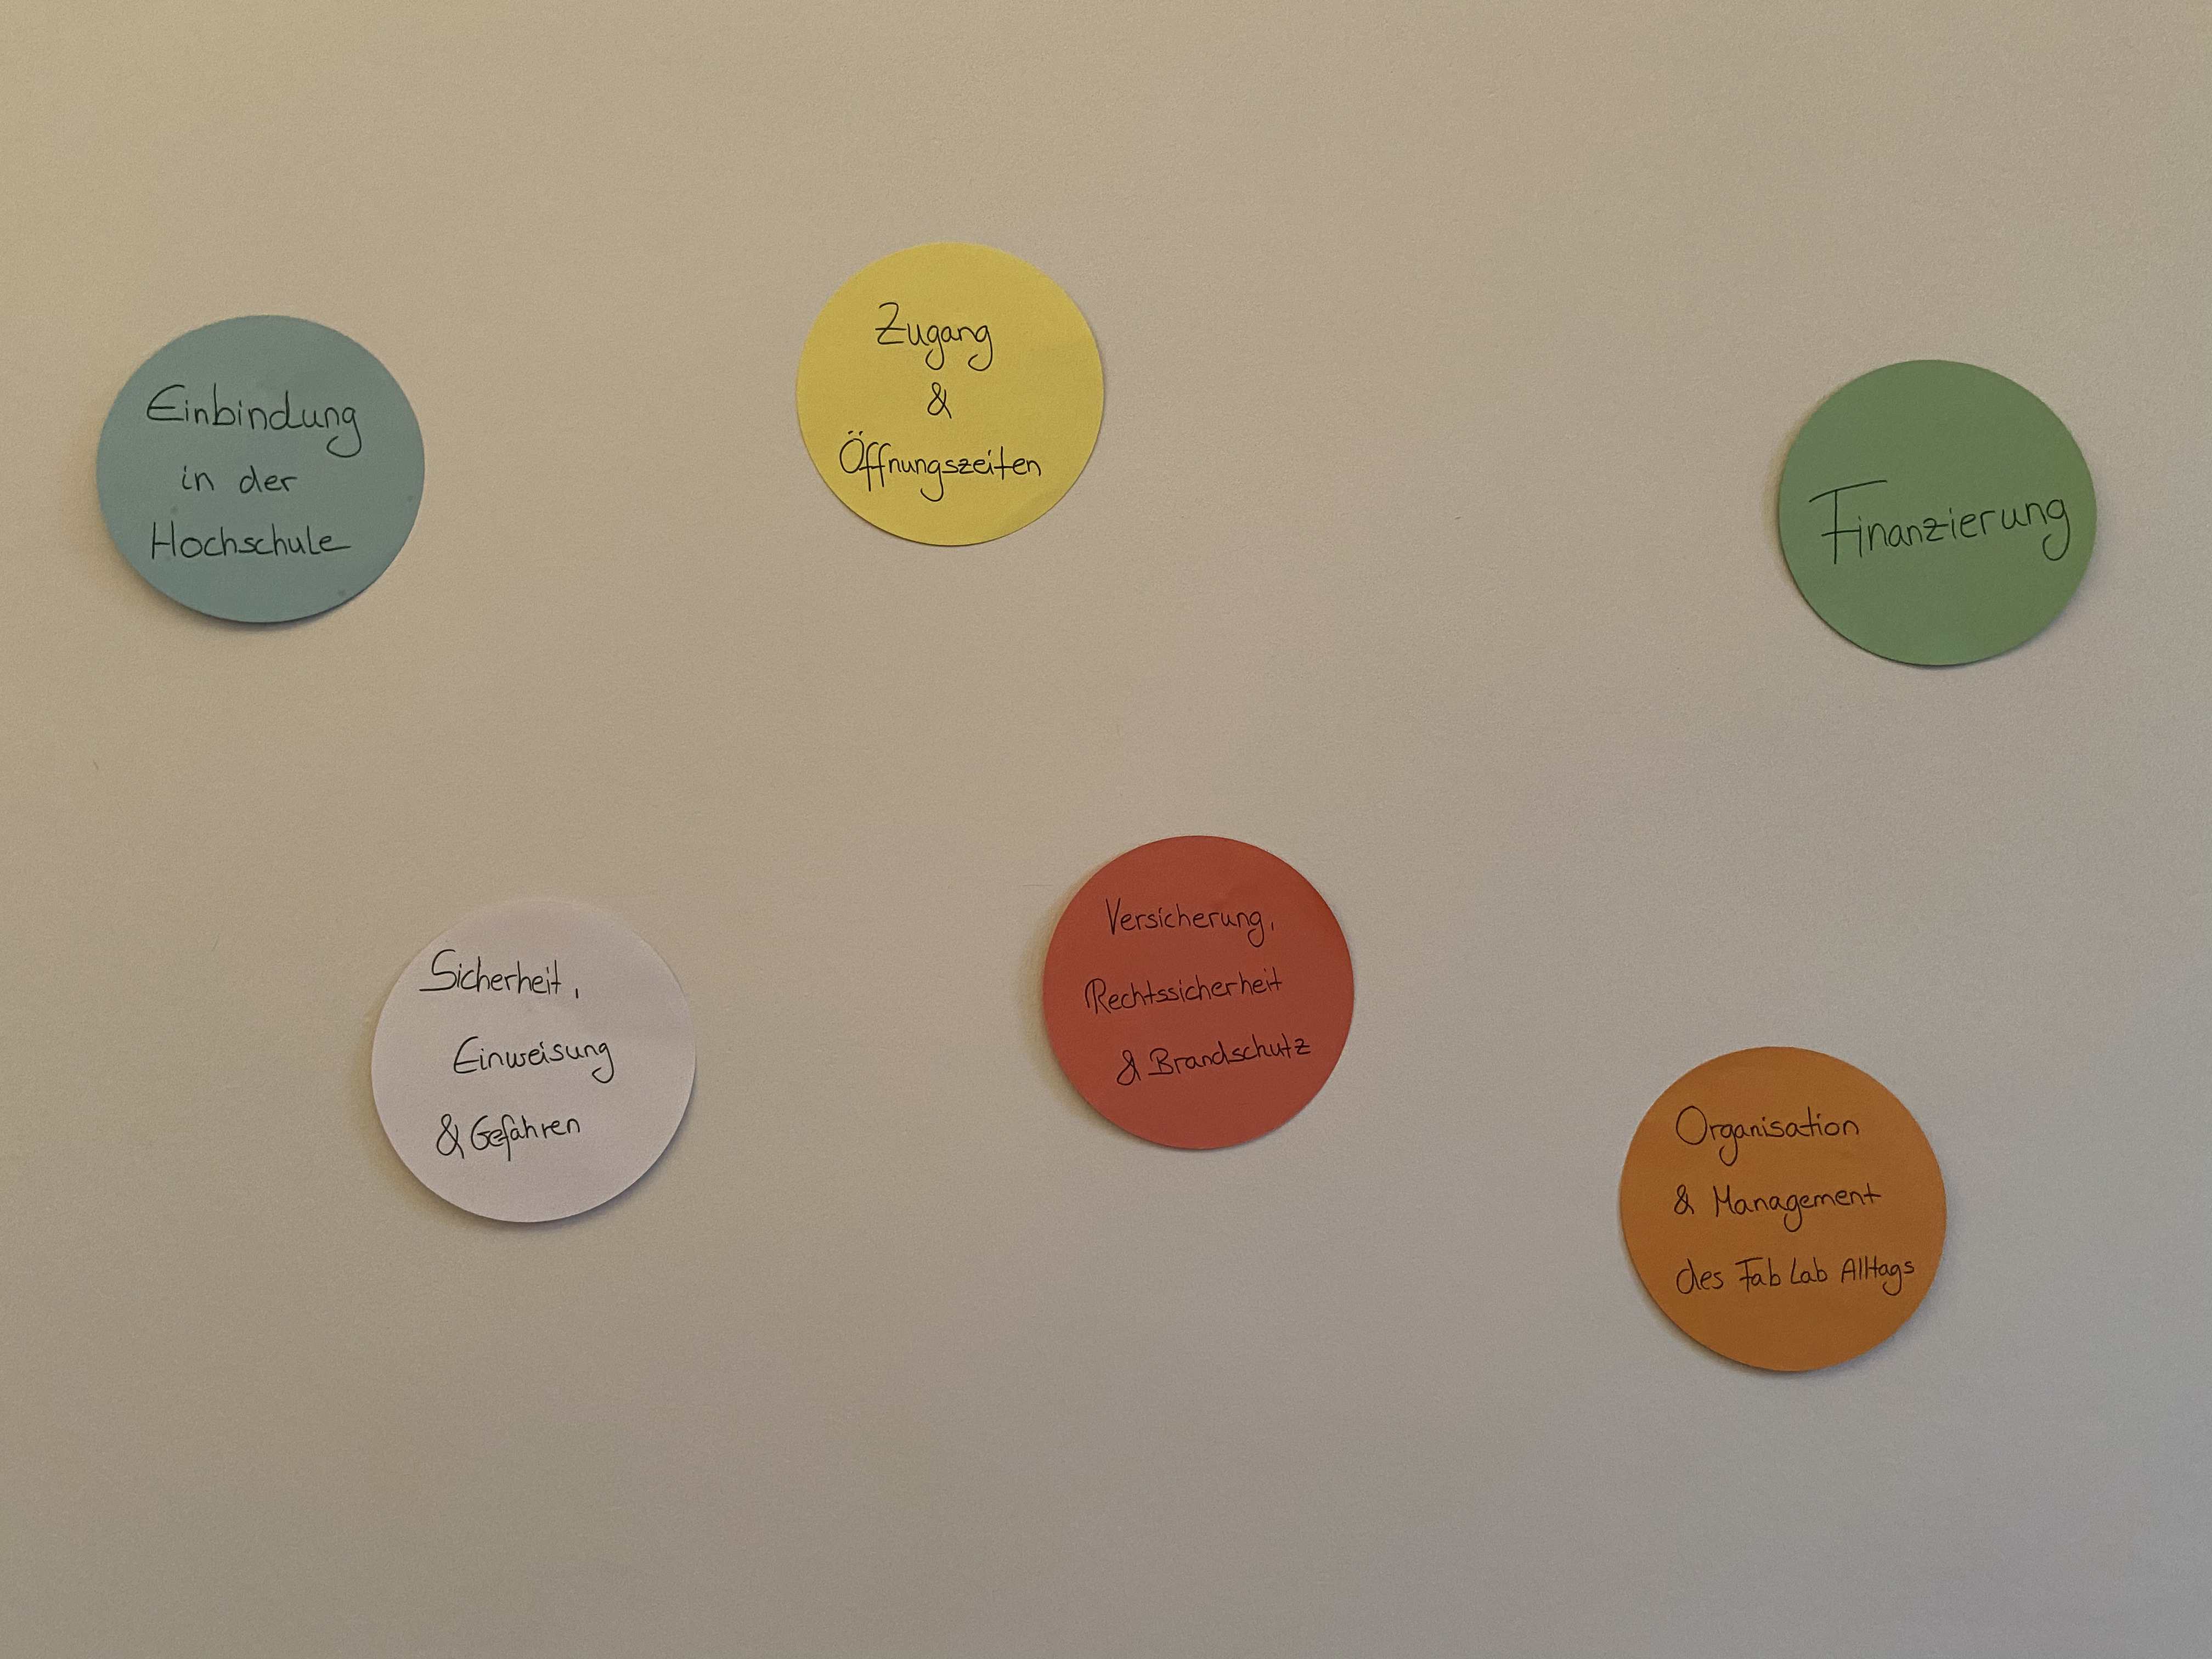 Einbindung
in der
Hochschule
Zugang
&
Öffnungszeiten
Finanzierung
Sicherheit,
Einweisung
& Gefahren
Versicherung,
Rechtssicherheit
& Brandschutz
Organisation
& Management
des Fab Lab Alltags